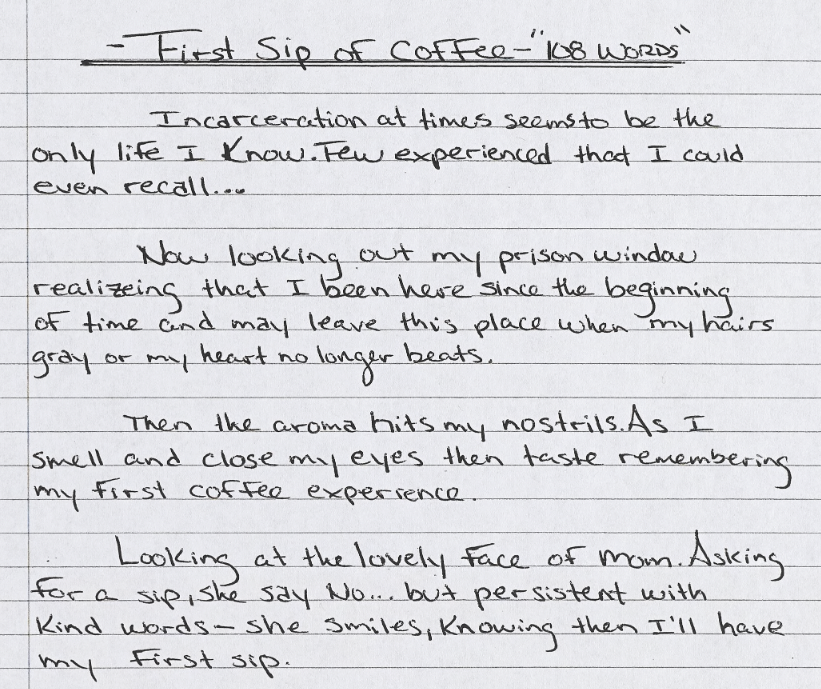 - First Sip of Coffee - "108 WORDS"
Incarceration at times seems to be the
only life I know. Few experienced that I could
even recall...
Now looking out my prison window
realizeing that I been here since the beginning
of time and may leave this place when my hairs
gray or my heart no longer beats.
Then the aroma hits my nostrils. As I
smell and close my eyes then taste remembering
my first coffee experience.
Looking at the lovely face of mom. Asking
for a sip, she say No... but persistent with
kind words - she smiles, knowing then I'll have
my first sip.